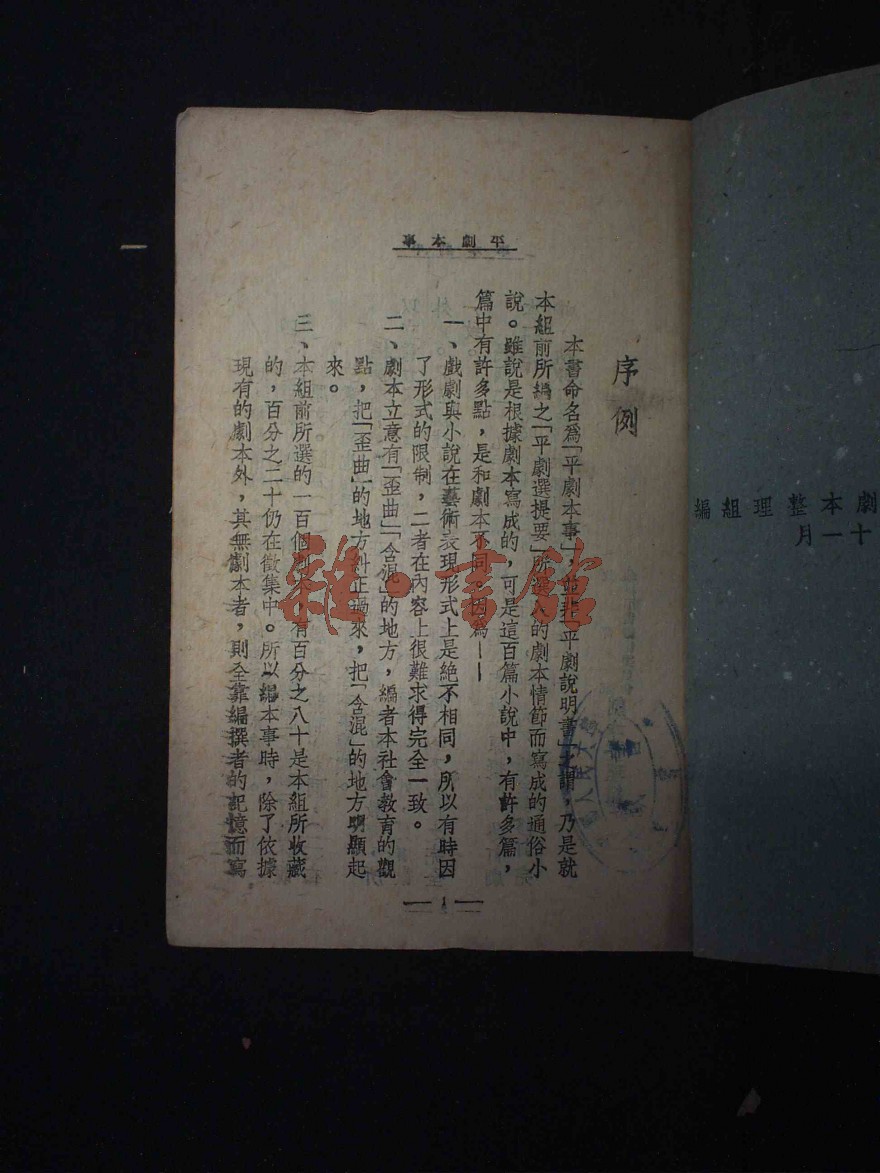 平劇本事
序例
本書命名爲「平劇本事」，並非「平劇說明書」之謂，乃是就
本組前所編之「平劇選提要」所選入的劇本情節而寫成的通俗小
說。雖說是根據劇本寫成的，可是這百篇小說中，有許多篇，
篇中有許多點，是和劇本不同。因爲——
一、戲劇與小說在藝術表現形式上是絶不相同，所以有時因
了形式的限制，二者在內容上很難求得完全一致。
二、劇本立意有「歪曲」「含混」的地方，編者本社會教育的觀
點，把「歪曲」的地方糾正過來，把「含混」的地方明顯起
來。
三、本組前所選的一百個劇本，有百分之八十是本組所收藏
的，百分之二十仍在徵集中。所以編本事時，除了依據
現有的劇本外，其無劇本者，則全靠編撰者的記憶而寫
1
劇本整理組編
十一月
雜·書館